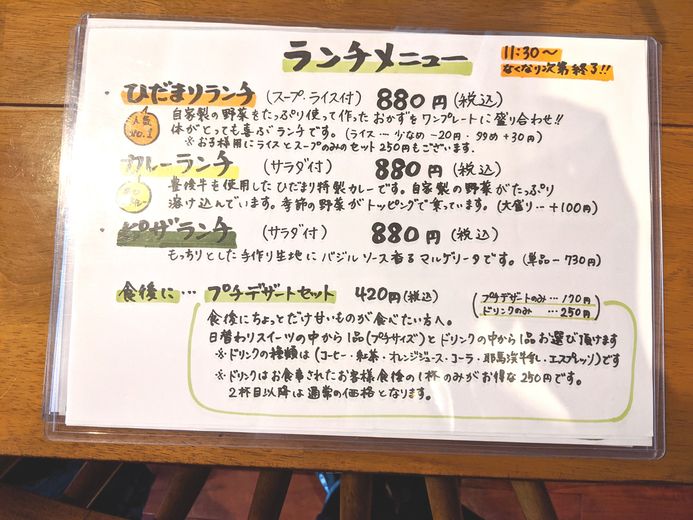 ランチメニュー
11:30〜
なくなり次第終了!!
・ひだまりランチ (スープ・ライス付) 880円(税込)
人気
No.1
自家製の野菜をたっぷり使って作ったおかずをワンプレートに盛り合わせ!!
体がとっても喜ぶランチです。(ライス…少なめ-20円・多め+30円)
※お子様用にライスとスープのみのセット250円もございます。
カレーランチ (サラダ付) 880円(税込)
豊後牛も使用したひだまり特製カレーです。自家製の野菜がたっぷり
溶け込んでいます。季節の野菜がトッピングで乗っています。(大盛り…+100円)
・ピザランチ (サラダ付) 880円(税込)
もっちりとした手作り生地にバジルソース香るマルゲリータです。(単品-730円)
食後に… プチデザートセット 420円(税込)
(プチデザートのみ…170円
ドリンクのみ…250円)
食後にちょっとだけ甘いものが食べたい方へ。
日替わりスイーツの中から1品(プチサイズ)とドリンクの中から1品お選び頂けます
※ドリンクの種類は(コーヒー・紅茶・オレンジジュース・コーラ・耶馬渓牛乳・エスプレッソ)です
※ドリンクはお食事されたお客様食後の1杯のみがお得な250円です。
2杯目以降は通常の価格となります。